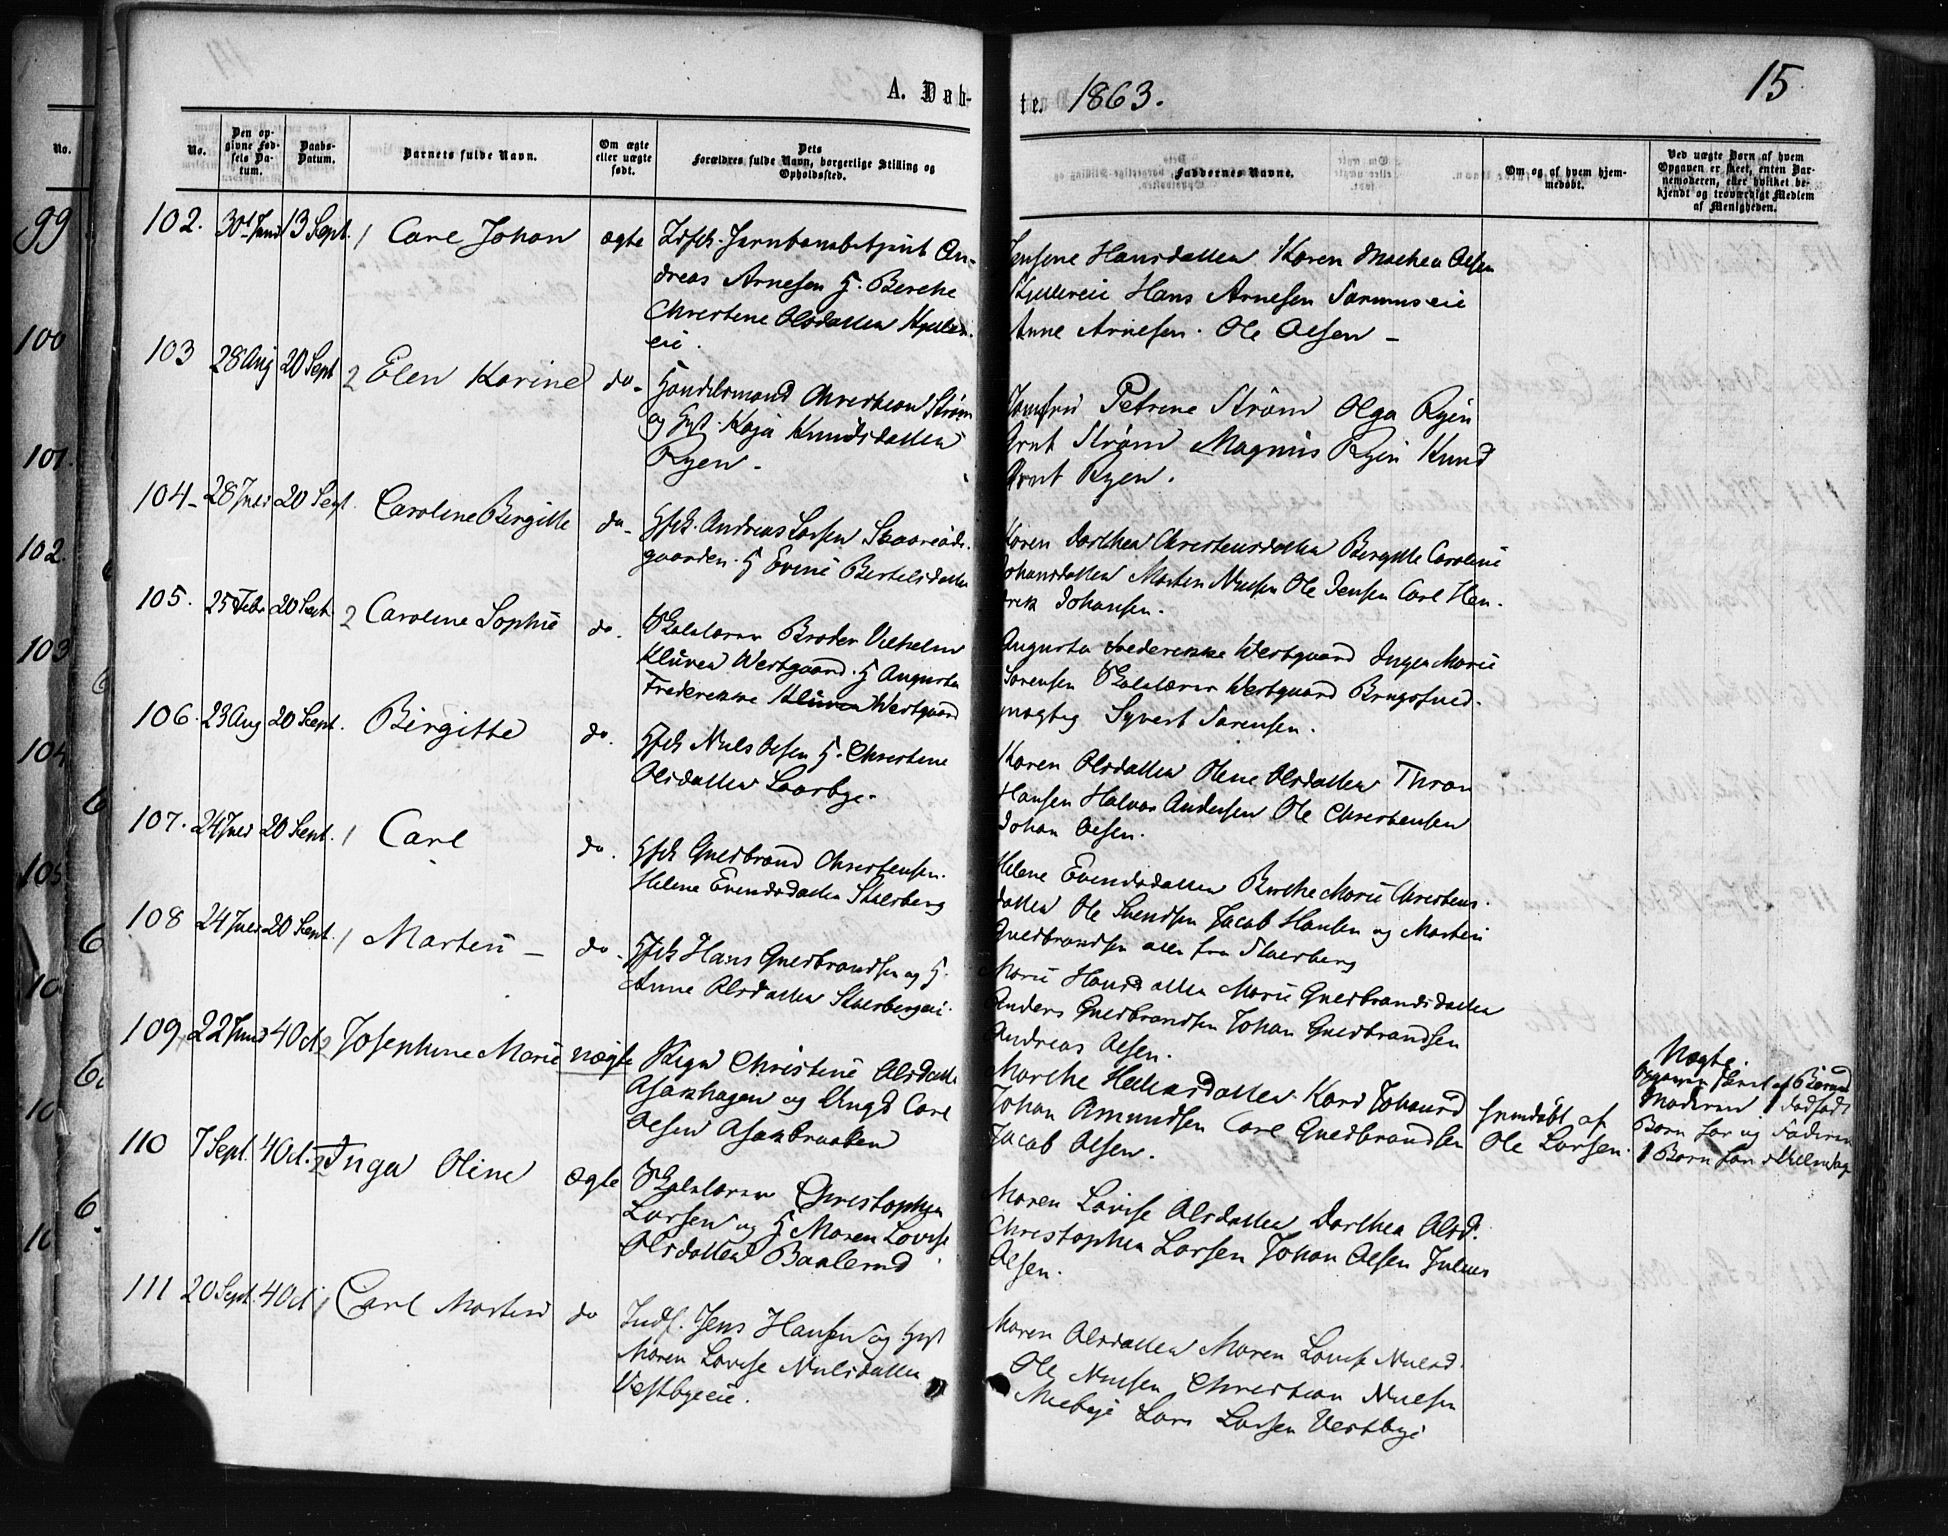 A. Døb-
te. 1863.
15
No.
No.
Den op-
givne Fød-
sels Da-
tum.
Daabs-
Datum.
Barnets fulde Navn.
Om ægte
eller uægte
født.
Dets
Forældres fulde Navn, borgerlige Stilling og
Opholdssted.
Faddernes Navne.
Om og af hvem hjem-
medøbt.
Ved uægte Børn af hvem
Opgaven er skeet, enten Bar-
nemoderen, eller hvilket be-
kjendt og troværdigt Medlem
af Menigheden.
99
100
101.
102.
103
104
105
102. 30t Juni 13 Sept. 1 Carl Johan ægte
Jernbanebetjent An-
dreas Arnesen H. Berthe
Christine Olsdatter
eie.
Jensine Hansdatter Karen Mathea Olsen
Hans Arnesen
Anne Arnesen. Ole Olsen -
103 28 Aug 20 Sept 2 Elen Karine do-
Handelsmand Christian Strøm
og Hst. Kaja Knudsdatter
Ryen -
Jomfru Petrine Strøm Olga Ryen
Arnt Strøm Magnus Ryen Knud
Arnt Ryen.
104- 28 Juli 20 Sept. Caroline Birgitte do-
Hfsk. Andreas Larsen
gaarden. H Eveni Bertelsdatter
Karen Dorthea Christensdatter Birgitte Caroline
Johansdatter Morten Nilsen Ole Jensen Carl Hen-
drik Johansen.
105. 25 Febr 20 Sept 2 Caroline Sophie do.
Skolelærer Broder Vilhelm
Klüver Westgaard. H Augusta
Frederikke Klüver Westgaard
Augusta Frederikke Westgaard Inger Marie
Sørensen Skolelærer Westgaard Brugsfuld-
mægtig Syvert Sørensen.
106. 23 Aug 20 Sept. Birgitte do.
Hfsk Nils Olsen H. Christine
Olsdatter Laarbye.
Karen Olsdatter Oline Olsdatter Thron
Hansen Halvor Andersen Ole Christensen
Johan Olsen.
107. 24 Juli 20 Sept. 1 Carl do.
Hfsk Gulbrand Christensen.
Helene Evendsdatter Skulberg
Helene Evendsdatter Berthe Marie Christens-
datter Ole Svendsen Jacob Hansen og Martin
Gulbrandsen alle fra Skulberg
108 24 Juli 20 Sept. 1 Martin - do-
Hfsk Hans Gulbrandsen og H.
Anne Olsdatter Skulbergeie.
Marie Hansdatter Marie Gulbrandsdatter
Anders Gulbrandsen Johan Gulbrandsen
Andreas Olsen.
109. 22 Juni 4 Oct 2 Josephine Marie uægte
Pige Christine Olsdatter
Asakhagen og Ungk Carl
Olsen Asakbraaten
Marthe Helliksdatter Kari Johansd
Johan Amundsen Carl Gulbrandsen
Jacob Olsen.
hjemdøbt af
Ole Larsen.
Uægte.
Opgaven skeet af Barnet
Moderen.
Barn for og Faderen
1 Barn for
110 7 Sept. 4 Oct. 2 Inga Oline ægte
Skolelærer Christopher
Larsen og H Maren Lovise
Olsdatter Baalerud
Maren Lovise Olsdatter Dorthea Olsd.
Christopher Larsen Johan Olsen Julius
Olsen.
111 20 Sept. 4 Oct 1 Carl Martin do
Indf. Jens Hansen og Hst
Maren Lovise Nilsdatter
Vestbyeeie.
Maren Olsdatter Maren Lovise Nilsd.
Ole Nilsen Christian Nilsen
Lars Larsen Vestbye